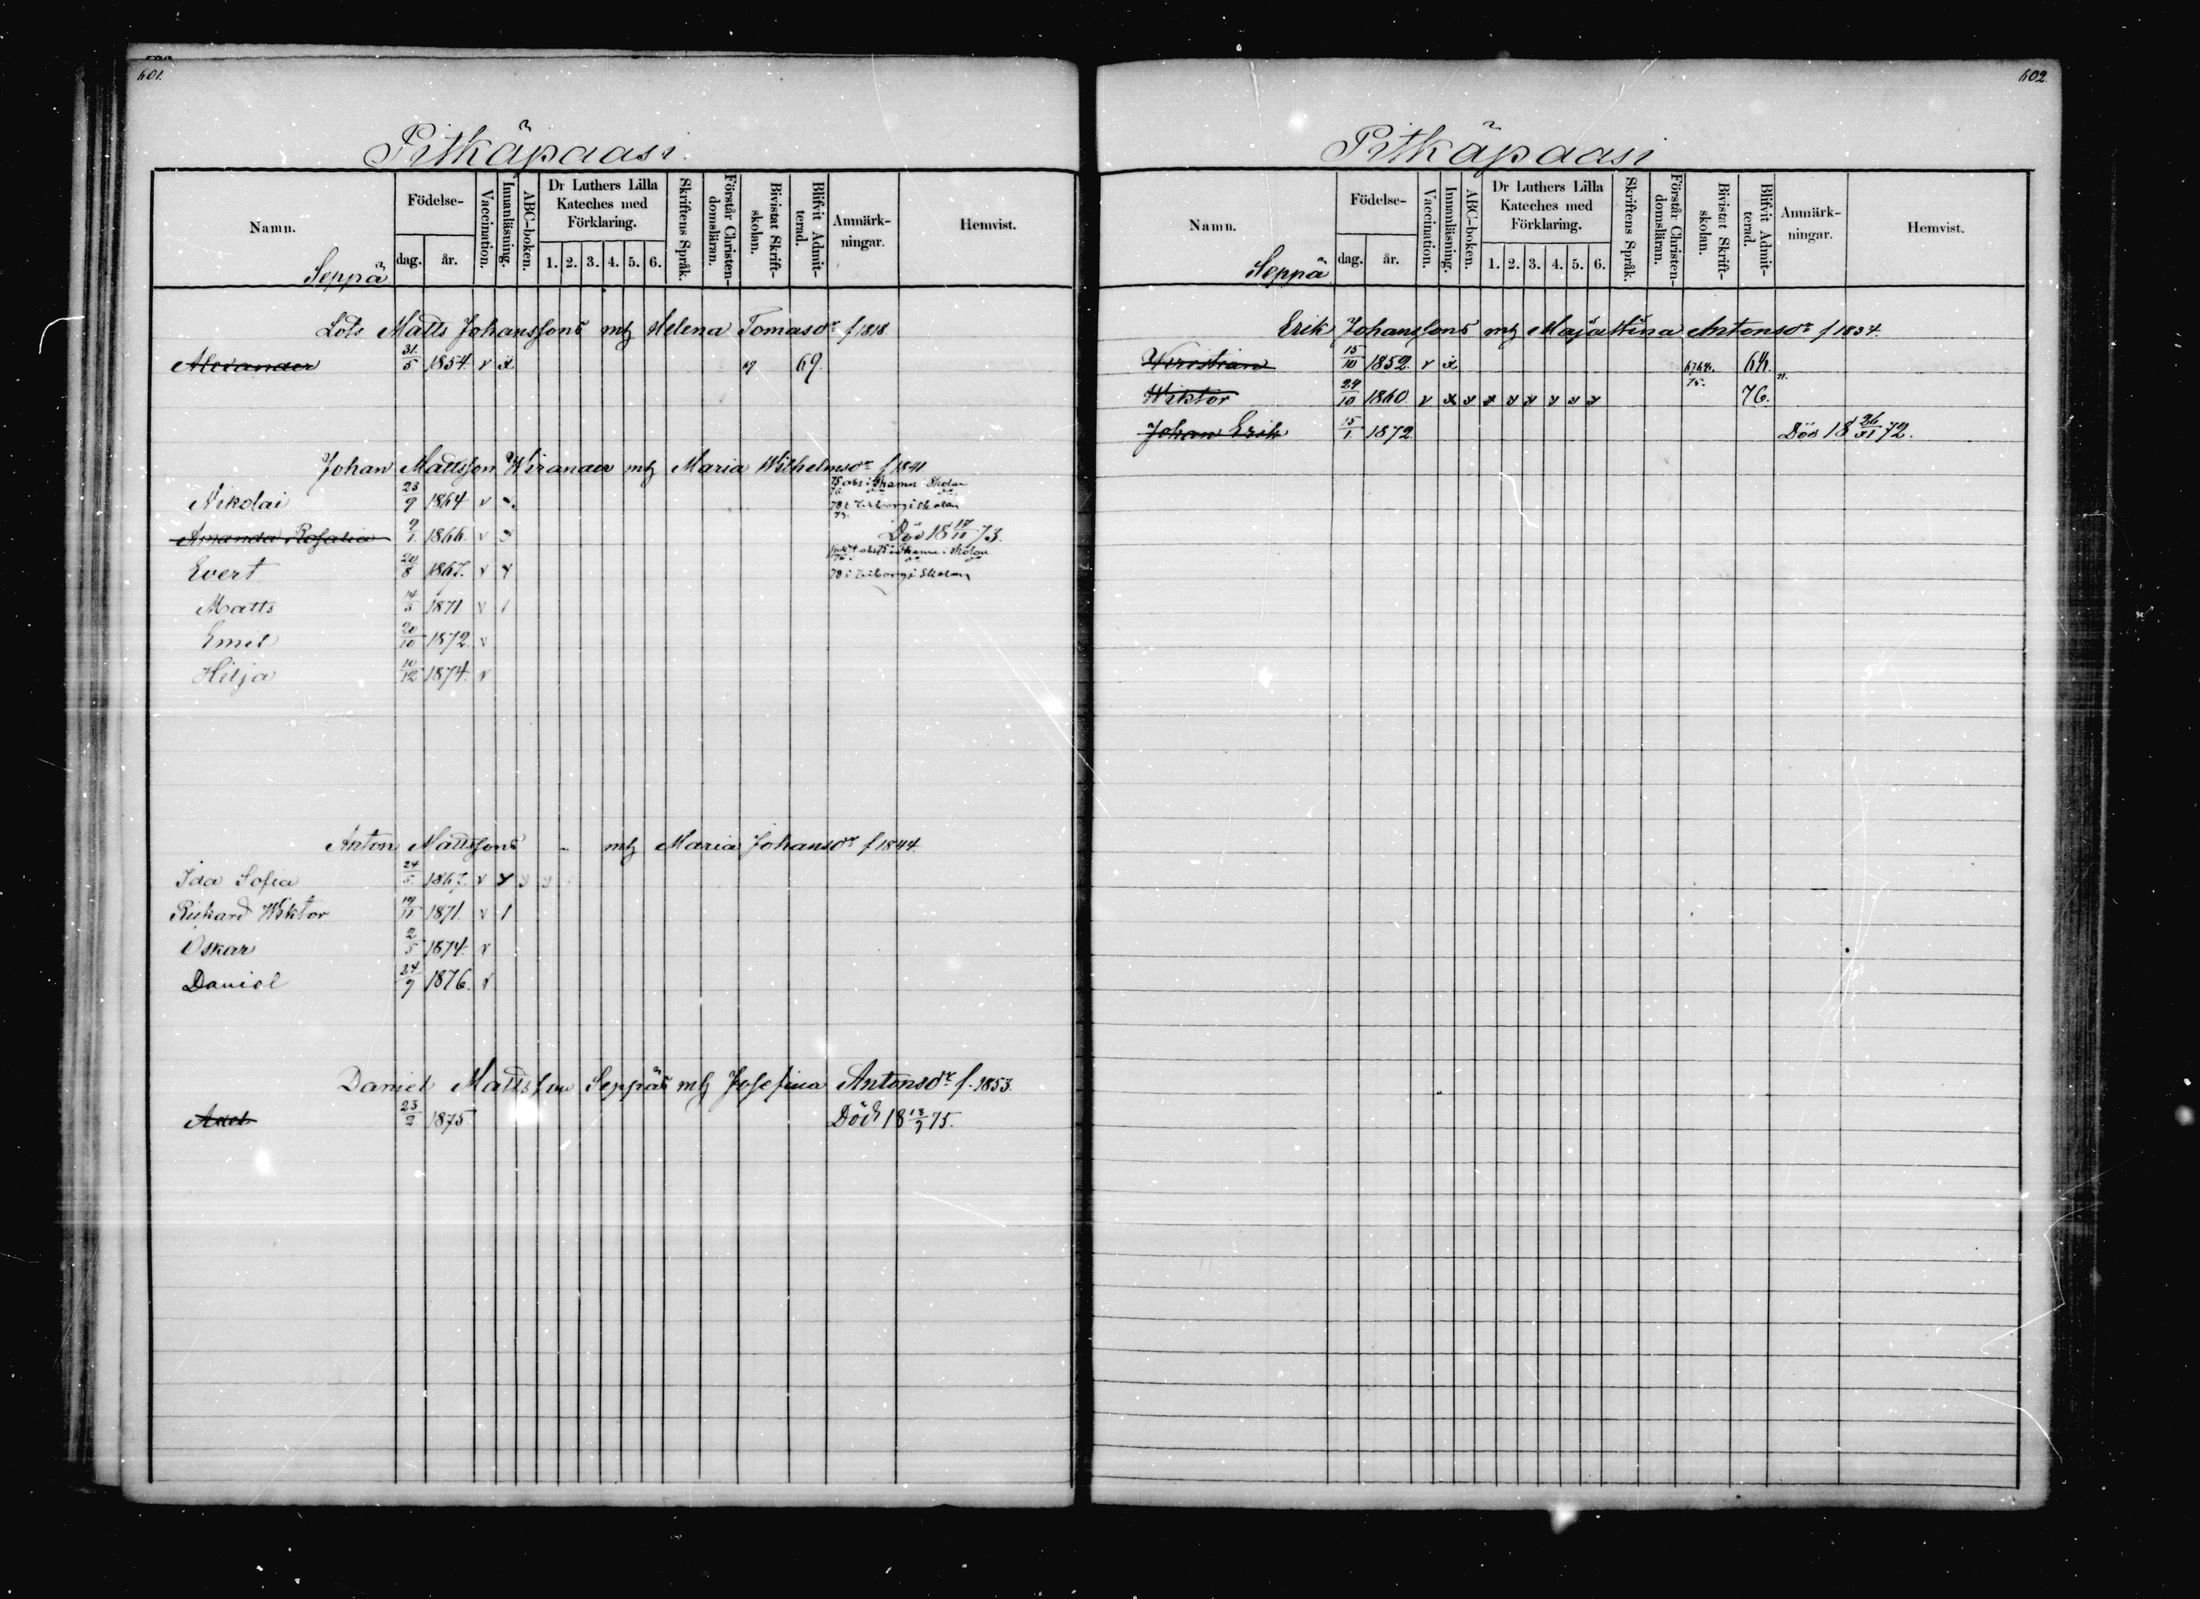 601.
Pitkäpaasi
Namn. Födelse- dag. år. Vaccination. Innanläsning. ABC-boken. Dr Luthers Lilla Kateches med Förklaring. 1. 2. 3. 4. 5. 6. Skriftens Språk. Förstår Christendomsläran. Bivistat Skriftskolan. Blifvit Admitterad. Anmärkningar. Hemvist.
Seppä
Lots Matts Johanssons mh Helena Tomasdr f 1818
Alexander 31/5 1854 v x 69 69.
Johan Mattsson Wirander mh Maria Wilhelmsdr f 1841
Nikolai 23/9 1864 v
Amanda Rosalia 9/1 1866 v Död 18 17/11 73.
Evert 20/8 1867. v
Matts 14/5 1871 v 1
Emel 20/10 1872 v
Hilja 10/12 1874. v
Anton Mattssons - mh Maria Johansdr f 1844.
Ida Sofia 24/5 1867. v
Rickard Wiktor 19/11 1871. v 1
Oskar 2/5 1874. v
Daniel 24/9 1876. v
Daniel Mattsson Seppäs mh Josefina Antonsdr f. 1853.
Axel 23/2 1875 Död 18 18/9 75.
602.
Pitkäpaasi
Namn. Födelse- dag. år. Vaccination. Innanläsning. ABC-boken. Dr Luthers Lilla Kateches med Förklaring. 1. 2. 3. 4. 5. 6. Skriftens Språk. Förstår Christendomsläran. Bivistat Skriftskolan. Blifvit Admitterad. Anmärkningar. Hemvist.
Seppä
Erik Johanssons mh Majastina Antonsdr f 1834.
Kristian 15/10 1852. v x 68.
Wiktor 24/10 1860. v x x x x x x x x 75. 76.
Johan Erik 15/1 1872. Död 18 26/11 72.